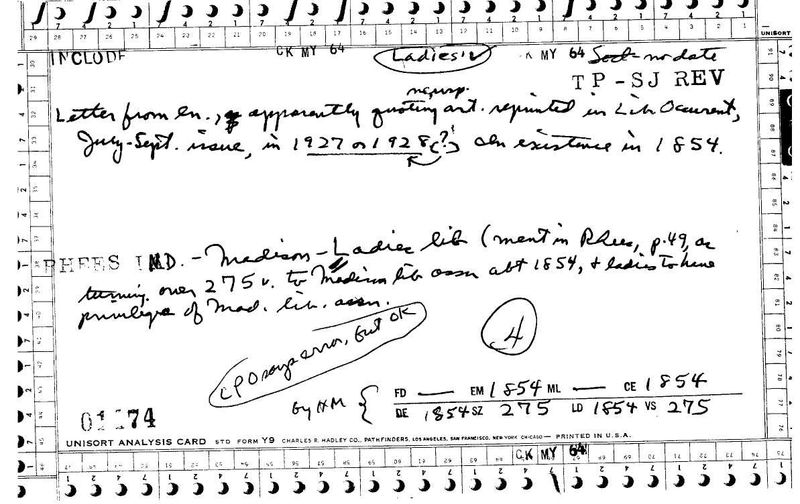 INCLUDE CK MY 64 Ladies' K MY 64 no date
TP-SJ REV
newsp.
Letter from ln., apparently quoting art. reprinted in Lib Occurent,
July-Sept. issue, in 1927 or 1928 (?) on existence in 1854.
RHEES IND. - Madison - Ladies lib (ment in Rhees, p. 49, as
turning over 275 v. to Madison lib assn abt 1854, & ladies to have
privilege of Mad. lib. assn.
LPO says error, but OK
4
FD — EM 1854 ML — CE 1854
DE 1854 SZ 275 LD 1854 VS 275
74
UNISORT ANALYSIS CARD STD FORM Y9 CHARLES R. HADLEY CO., PATHFINDERS, LOS ANGELES, SAN FRANCISCO, NEW YORK, CHICAGO — PRINTED IN U.S.A.
CK MY 64
UNISORT